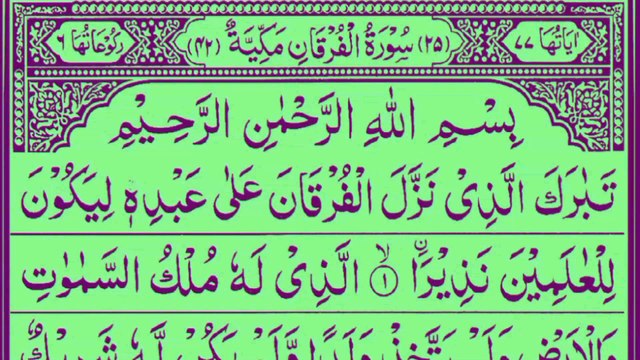 اٰيَاتُهَا ٧٧ (٢٥) سُوْرَةُ الْفُرْقَانِ مَكِّيَّةٌ (٤٢) رُكُوْعَاتُهَا ٦
بِسْمِ اللّٰهِ الرَّحْمٰنِ الرَّحِيْمِ
تَبٰرَكَ الَّذِىْ نَزَّلَ الْفُرْقَانَ عَلٰى عَبْدِهٖ لِيَكُوْنَ
لِلْعٰلَمِيْنَ نَذِيْرًا ۙ﴿١﴾ الَّذِىْ لَهٗ مُلْكُ السَّمٰوٰتِ
وَالْاَرْضِ وَلَمْ يَتَّخِذْ وَلَدًا وَّلَمْ يَكُنْ لَّهٗ شَرِيْكٌ